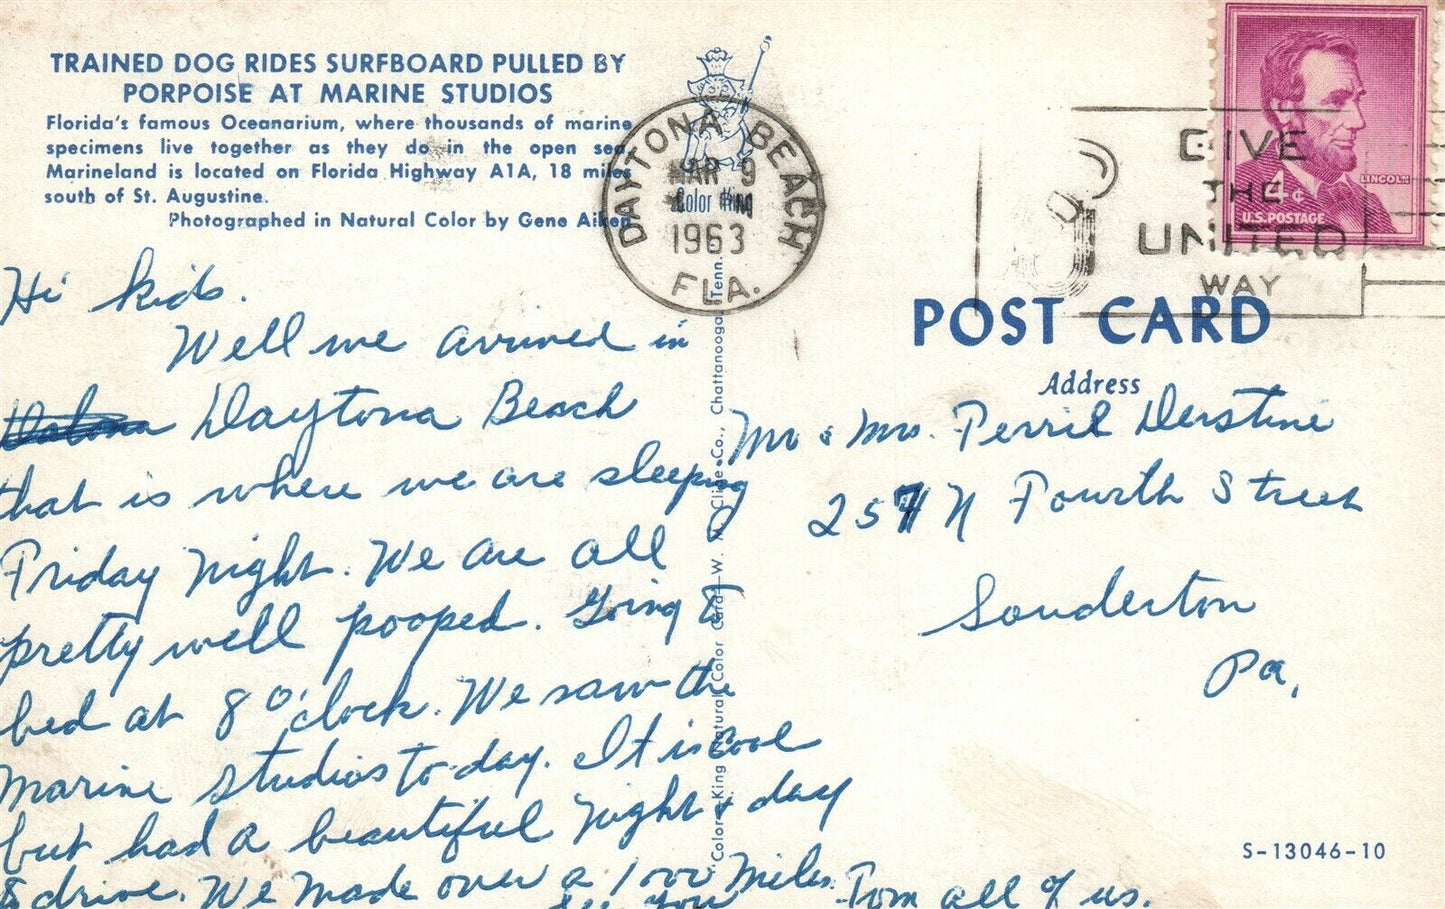 TRAINED DOG RIDES SURFBOARD PULLED BY
PORPOISE AT MARINE STUDIOS
Florida's famous Oceanarium, where thousands of marine
specimens live together as they do in the open sea.
Marineland is located on Florida Highway A1A, 18 miles
south of St. Augustine.
Photographed in Natural Color by Gene Aiken
Hi kids.
Well we arrived in
Daytona Beach
that is where we are sleeping
Friday night. We are all
pretty well pooped. Going to
bed at 8 o'clock. We saw the
Marine Studios to-day. It is cool
but had a beautiful night & day
to drive. We made over a 1000 Miles.
See You
Tom all of us.
DAYTONA BEACH
MAR 9
PM
1963
FLA.
Color King
Color King Natural Color Card—W. M. Cline Co., Chattanooga, Tenn.
GIVE
THE
UNITED
WAY
LINCOLN
4¢
U.S. POSTAGE
POST CARD
Address
Mr & Mrs. Perril Derstine
257 N Fourth Street
Souderton
Pa.
S-13046-10